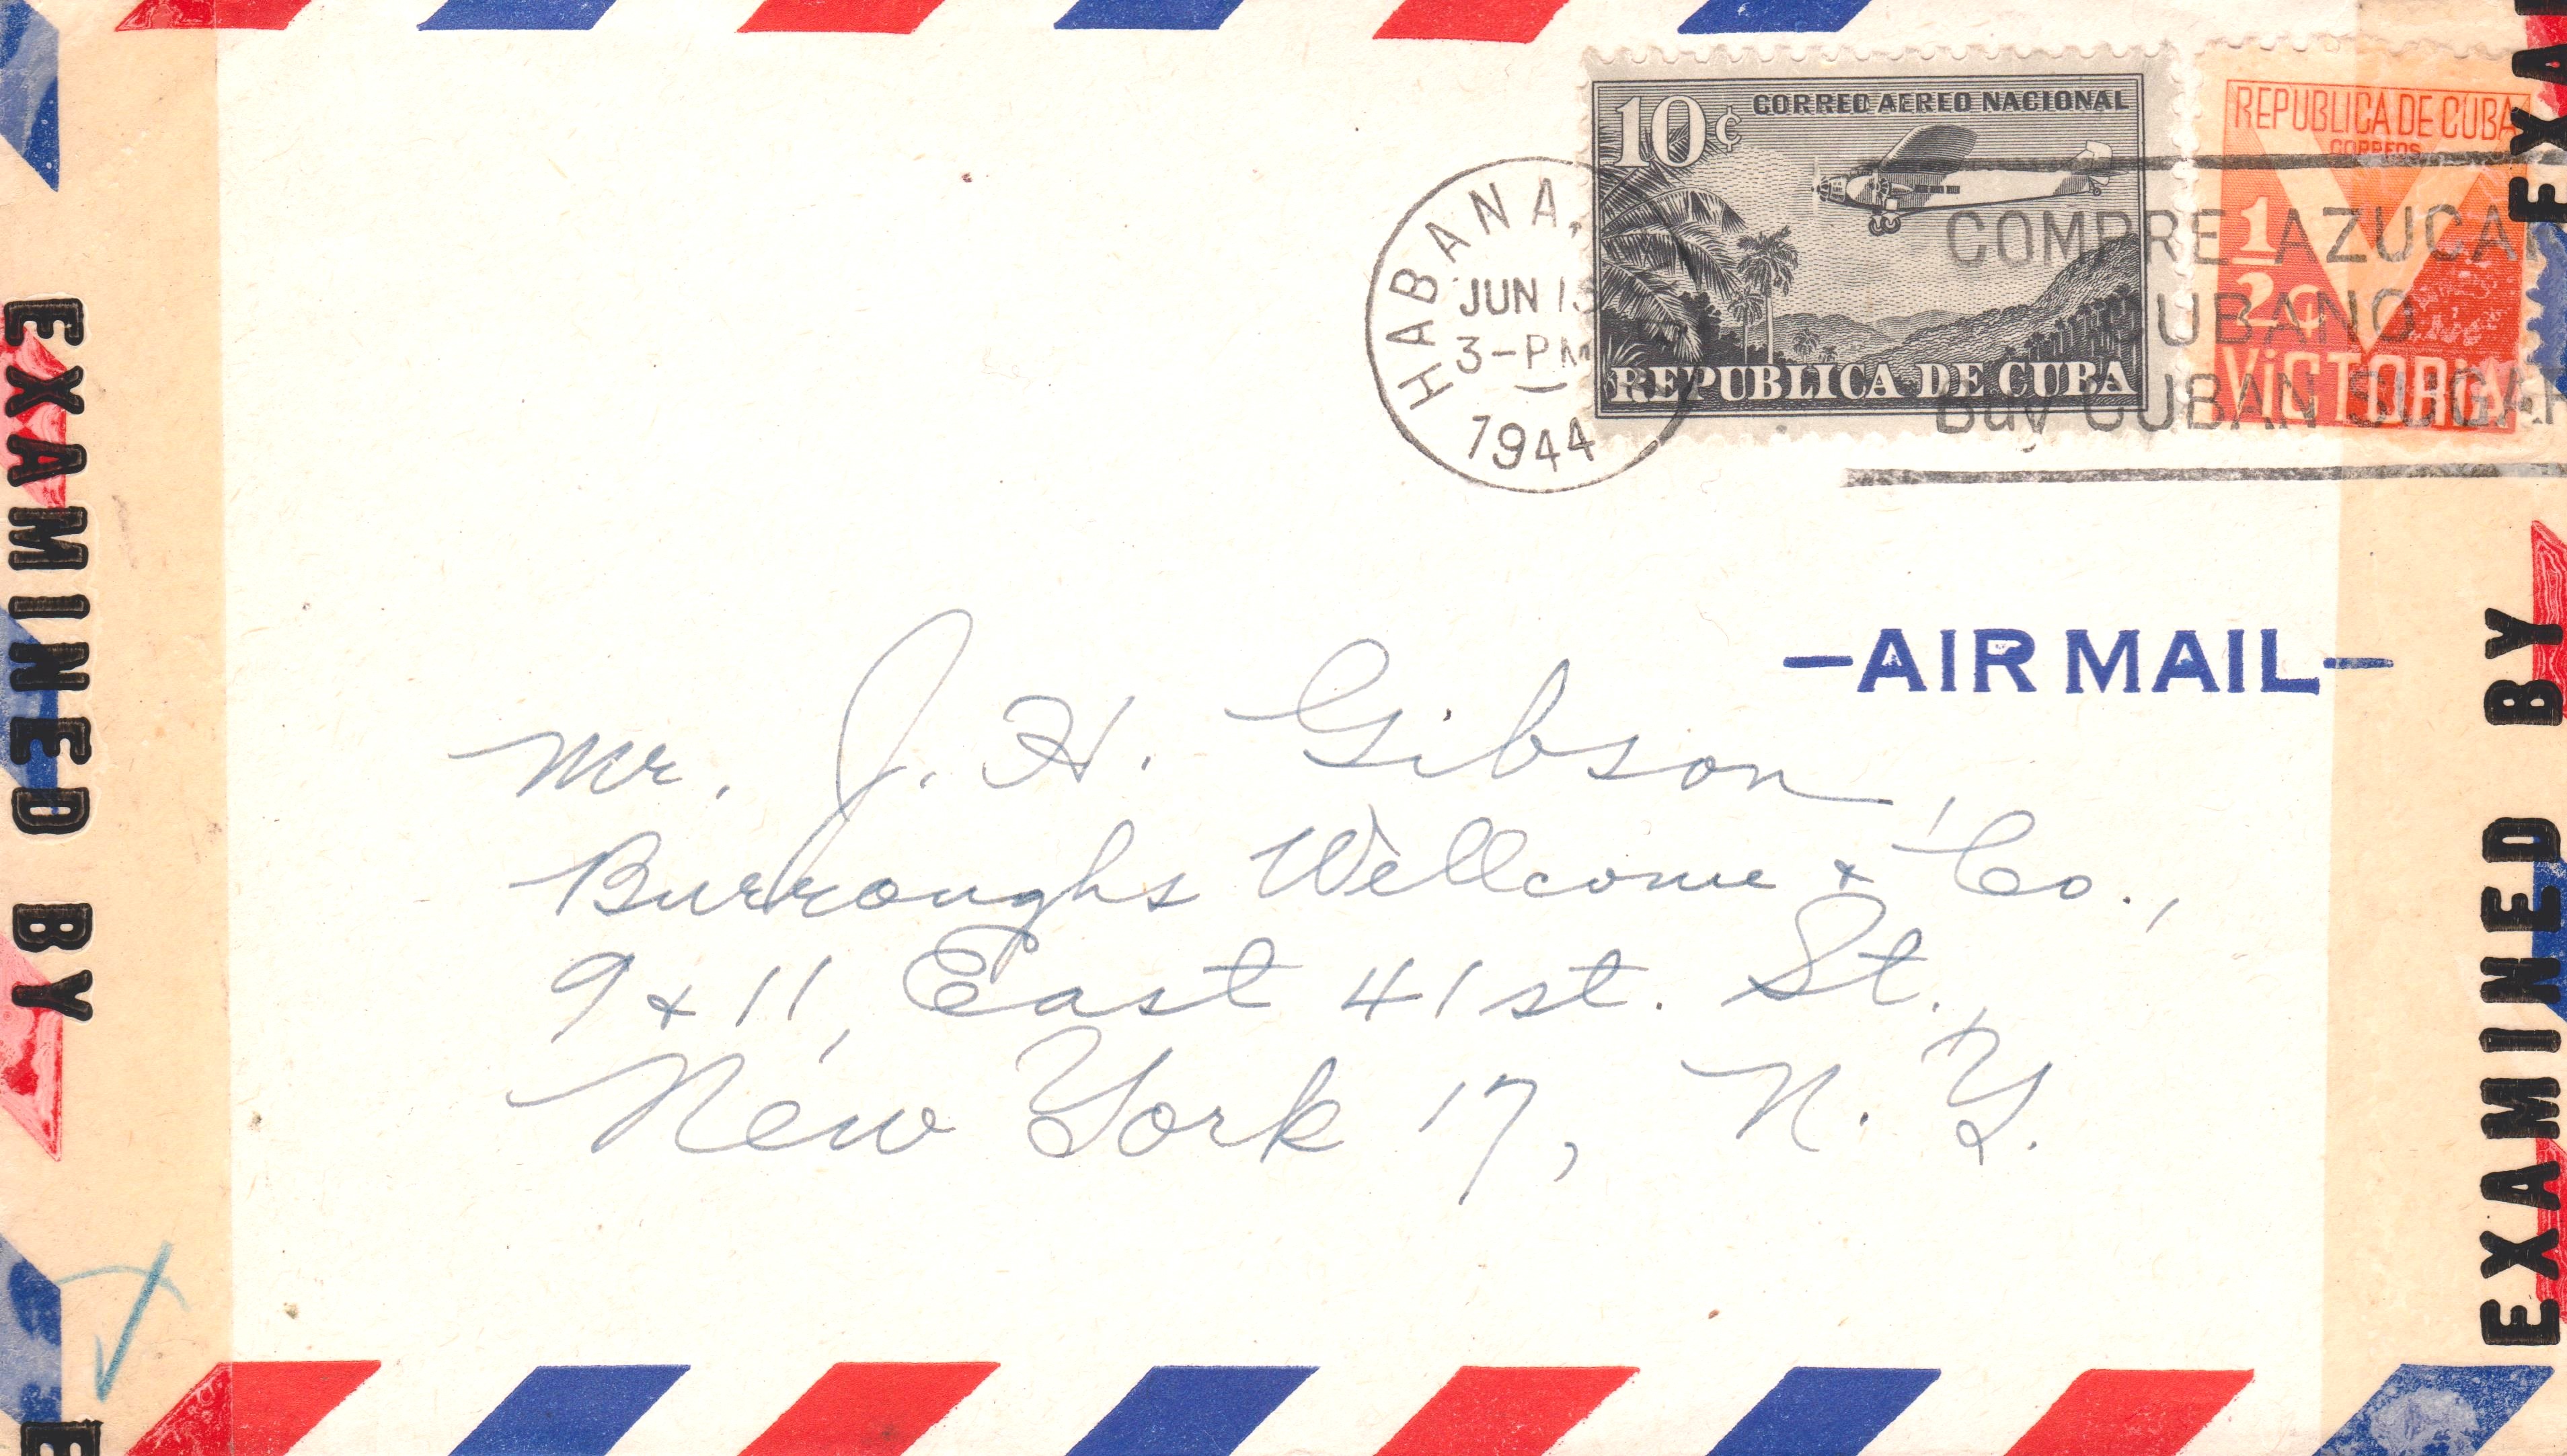 10¢ CORREO AEREO NACIONAL
REPUBLICA DE CUBA
REPUBLICA DE CUBA
CORREOS
1/2¢
VICTORIA
HABANA,
JUN 13
3-PM
1944
COMPRE AZUCAR
CUBANO
Buy CUBAN SUGAR
-AIR MAIL-
Mr. J. H. Gibson,
Burroughs Wellcome & Co.,
9 & 11, East 41st. St.,
New York 17, N. Y.
EXAMINED BY
E
EXAMINED BY
EXA